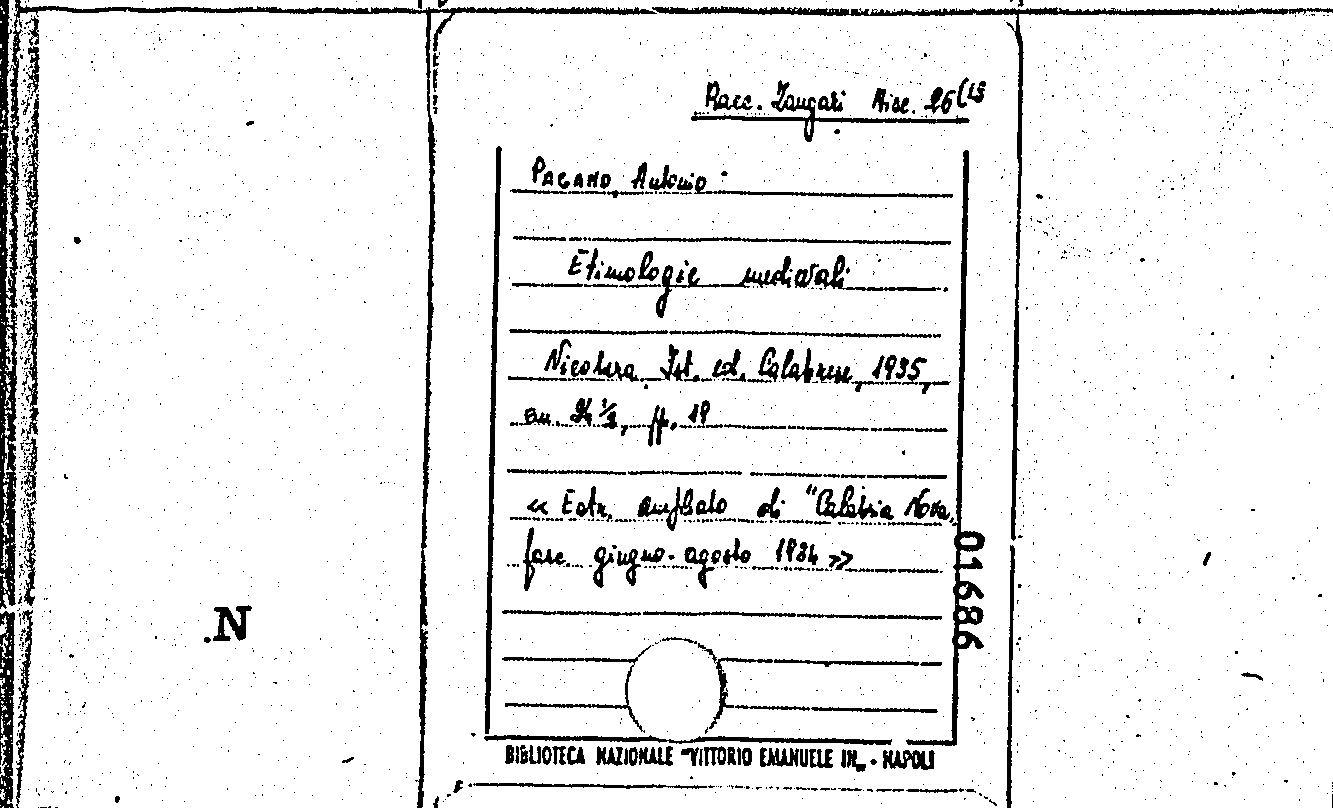 Racc. Zangari Misc. 26(15
PAGANO, Antonio
Etimologie medievali
Nicotera, Ist. ed. Calabrese, 1935,
cm. 24 1/2, pp. 19
« Estr. ampliato di "Calabria Nova,
fasc. giugno-agosto 1934 »
01686
.N
BIBLIOTECA NAZIONALE "VITTORIO EMANUELE III„ - NAPOLI